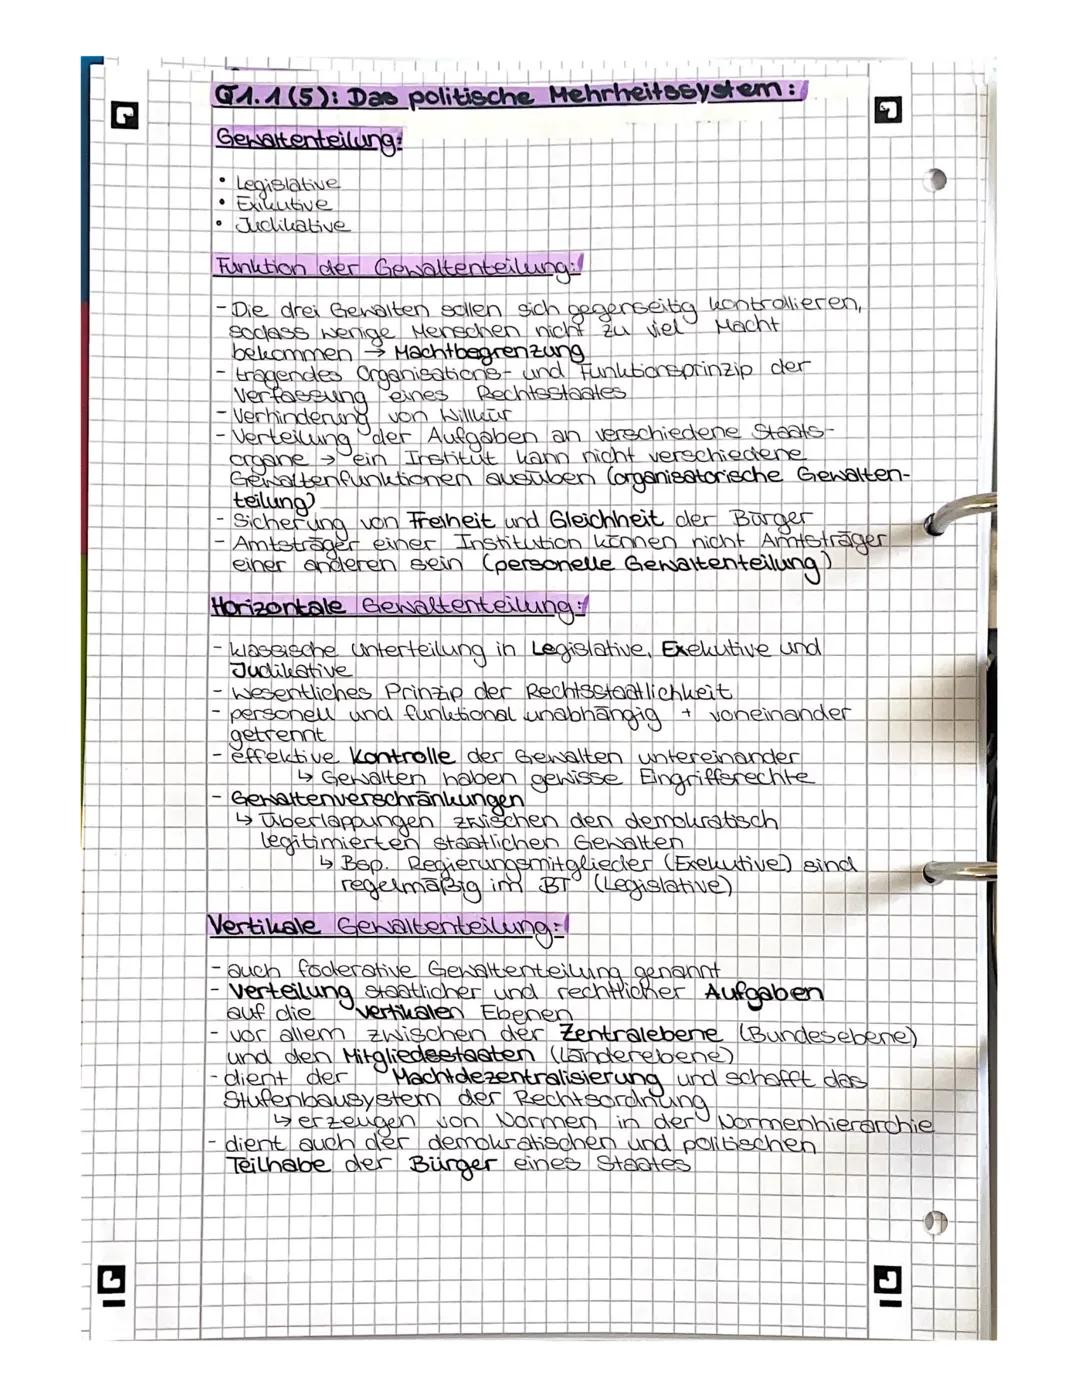 Q1.1(5): Das politische Mehrheitssystem:
Gewaltenteilung:
• Legislative
• Exikutive
• Judikative
Funktion der Gewaltenteilung:
- Die drei Gewalten sollen sich gegenseitig kontrollieren,
sodass wenige Menschen nicht zu viel Macht
bekommen → Machtbegrenzung
- tragendes Organisations- und Funktionsprinzip der
Verfassung eines Rechtsstaates
- Verhinderung von Willkür
- Verteilung der Aufgaben an verschiedene Staats-
organe → ein Institut kann nicht verschiedene
Gewaltenfunktionen ausüben (organisatorische Gewalten-
teilung)
- Sicherung von Freiheit und Gleichheit der Bürger
- Amtsträger einer Institution können nicht Amtsträger
einer anderen sein (personelle Gewaltenteilung)
Horizontale Gewaltenteilung:
- klassische Unterteilung in Legislative, Exekutive und
Judikative
- wesentliches Prinzip der Rechtsstaatlichkeit
- personell und funktional unabhängig + voneinander
getrennt
- effektive Kontrolle der Gewalten untereinander
↳ Gewalten haben gewisse Eingriffsrechte
- Gewaltenverschränkungen
↳ Überlappungen zwischen den demokratisch
legitimierten staatlichen Gewalten
↳ Bsp. Regierungsmitglieder (Exekutive) sind
regelmäßig im BT (Legislative)
Vertikale Gewaltenteilung:
- auch föderative Gewaltenteilung genannt
- Verteilung staatlicher und rechtlicher Aufgaben
auf die vertikalen Ebenen
- vor allem zwischen der Zentralebene (Bundesebene)
und den Mitgliedsstaaten (Länderebene)
- dient der Machtdezentralisierung und schafft das
Stufenbausystem der Rechtsordnung
↳ erzeugen von Normen in der Normenhierarchie
- dient auch der demokratischen und politischen
Teilhabe der Bürger eines Staates